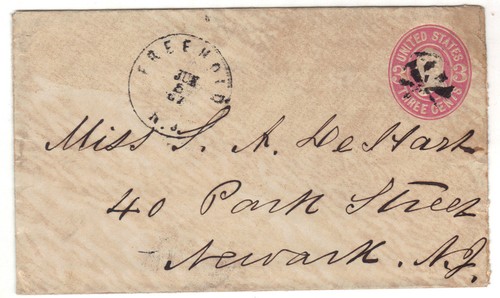 FREEHOLD
JUN
5
N.J.
UNITED STATES
3 3
THREE CENTS
Miss S. A. DeHart
40 Park Street
Newark. N.J.